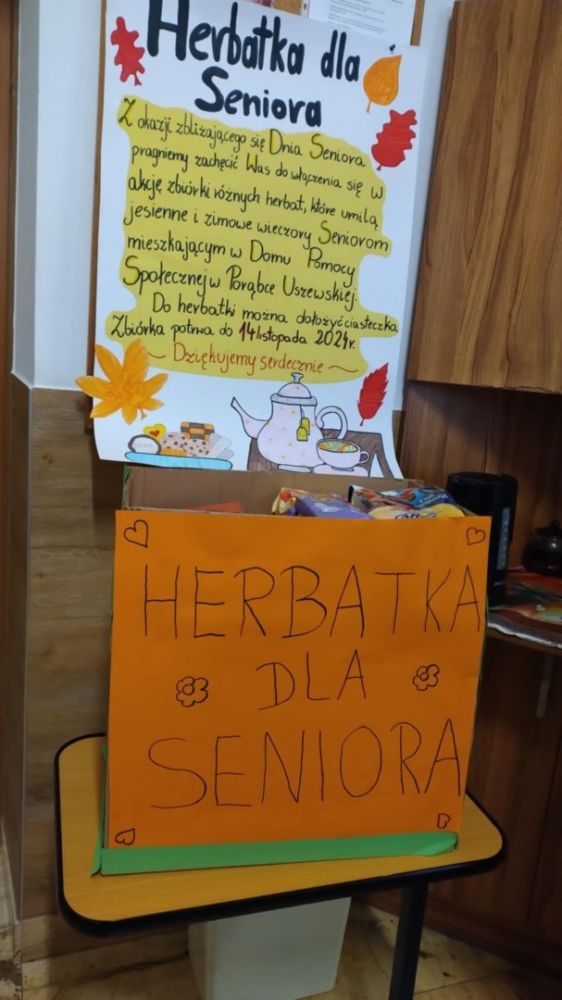 Herbatka dla
Seniora
Z okazji zbliżającego się Dnia Seniora
pragniemy zachęcić Was do włączenia się w
akcję zbiórki różnych herbat, które umilą
jesienne i zimowe wieczory Seniorom
mieszkającym w Domu Pomocy
Społecznej w Porąbce Uszewskiej.
Do herbatki można dołożyć ciasteczka
Zbiórka potrwa do 14 listopada 2024r.
~ Dziękujemy serdecznie ~
HERBATKA
DLA
SENIORA